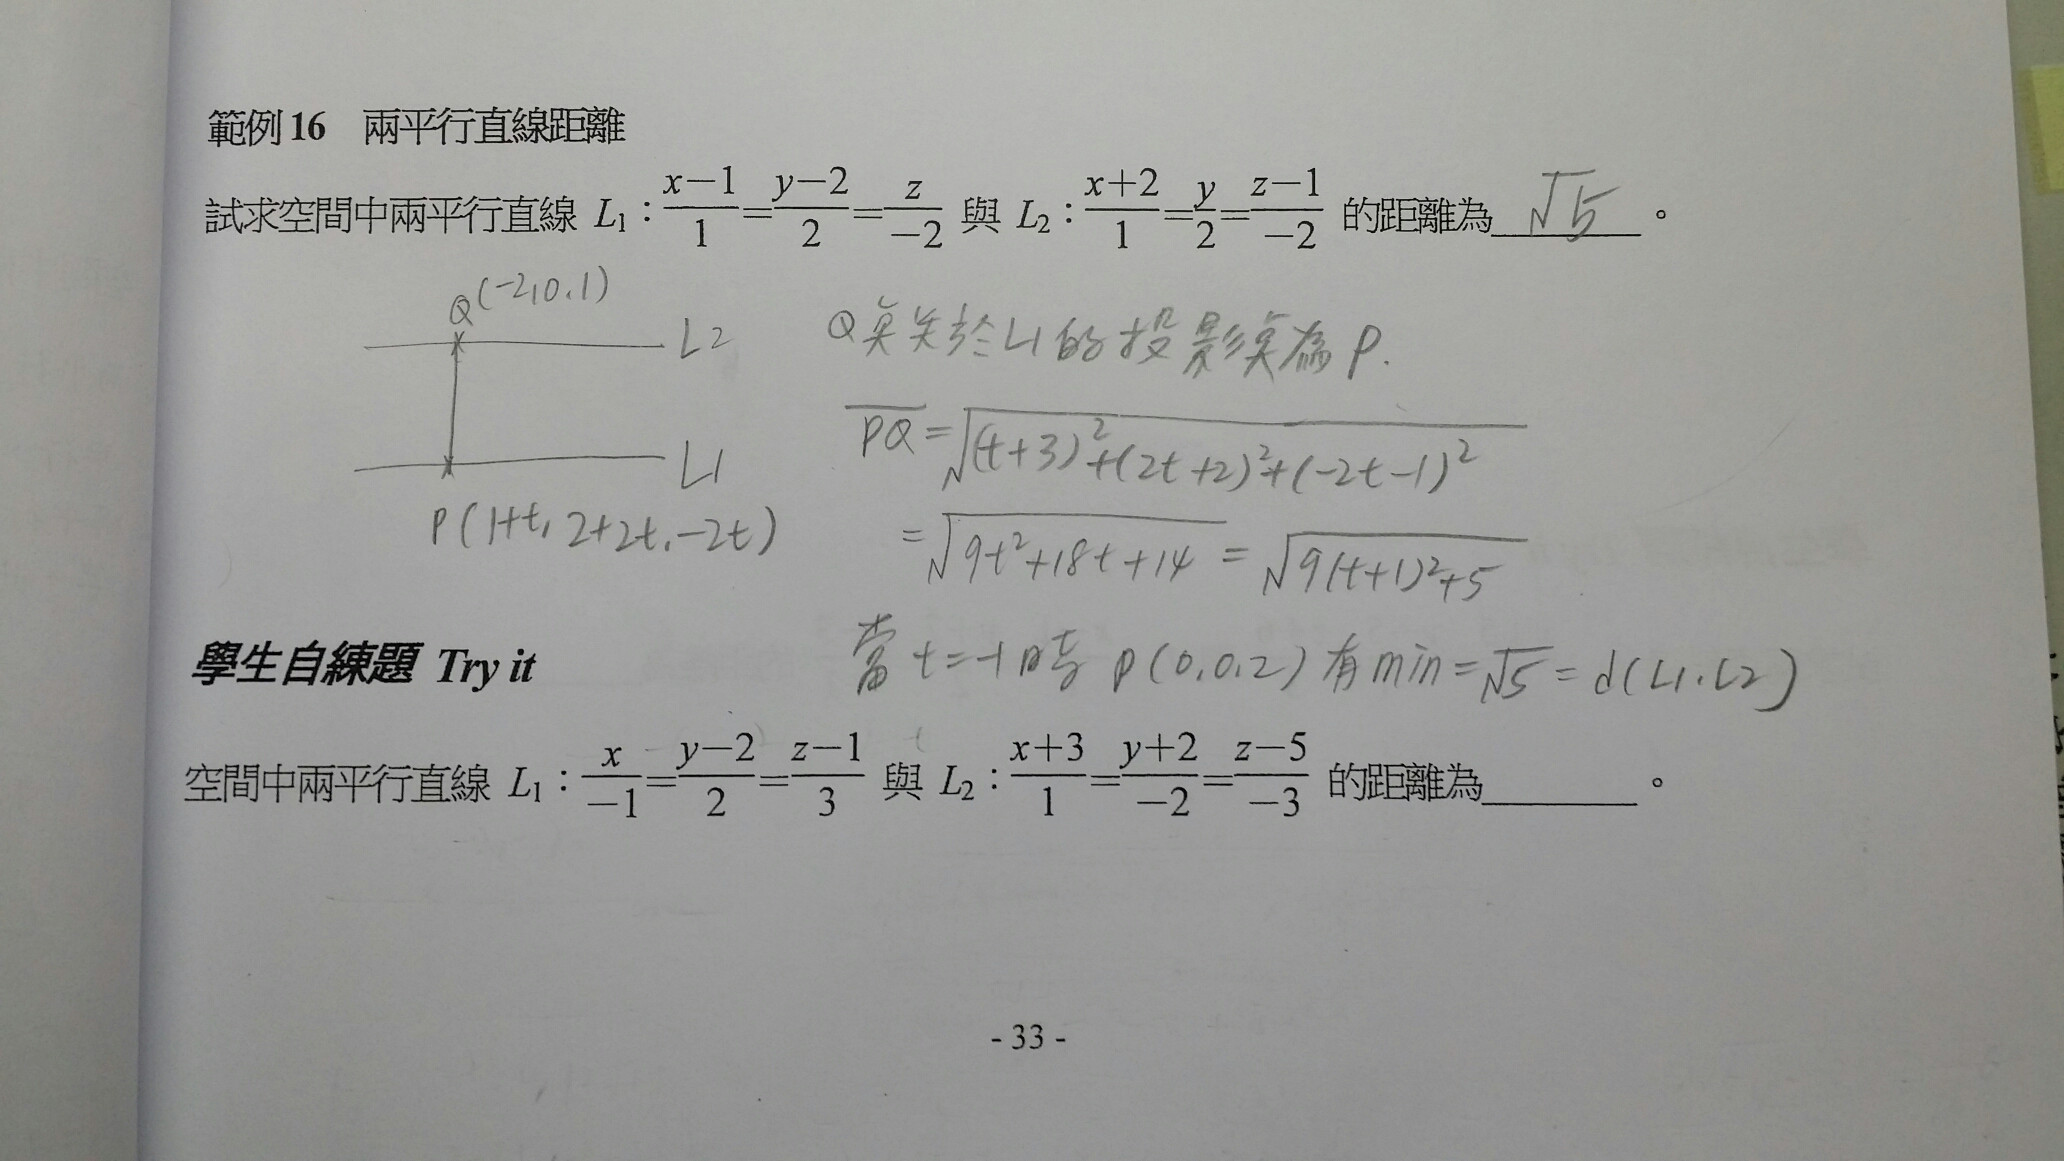 範例16 兩平行直線距離
試求空間中兩平行直線 L₁：(x−1)/1=(y−2)/2=z/−2 與 L₂：(x+2)/1=y/2=(z−1)/−2 的距離為 √5 。
Q(-2,0,1)
L2
L1
P(1+t, 2+2t, -2t)
Q矣关於L1的投影矣為P.
PQ=√((t+3)²+(2t+2)²+(-2t-1)²)
=√(9t²+18t+14)=√(9(t+1)²+5)
當t=-1時 P(0,0,2)有min=√5=d(L1,L2)
學生自練題 Try it
空間中兩平行直線 L₁：x/−1=(y−2)/2=(z−1)/3 與 L₂：(x+3)/1=(y+2)/−2=(z−5)/−3 的距離為 。
- 33 -